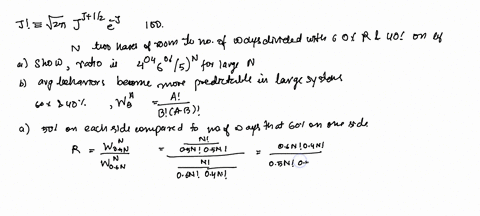 J! ≅ √2π J^{J+1/2} e^{-J} 150.
N two haves of room to no. of ways divided with 60% R & 40% on
a) Show, ratio is 4^{0.4} 6^{0.6}/5)^N for large N
b) avg behaviors become more predictable in large systems
60% & 40%, W_B^A = A!/B!(A-B)!
a) 50% on each side compared to no of ways that 60% on one side
R = W^N_{0.5N}/W^N_{0.6N} = (N!/0.5N! 0.5N!)/(N!/0.6N! 0.4N!) = 0.6N! 0.4N!/0.5N! 0.